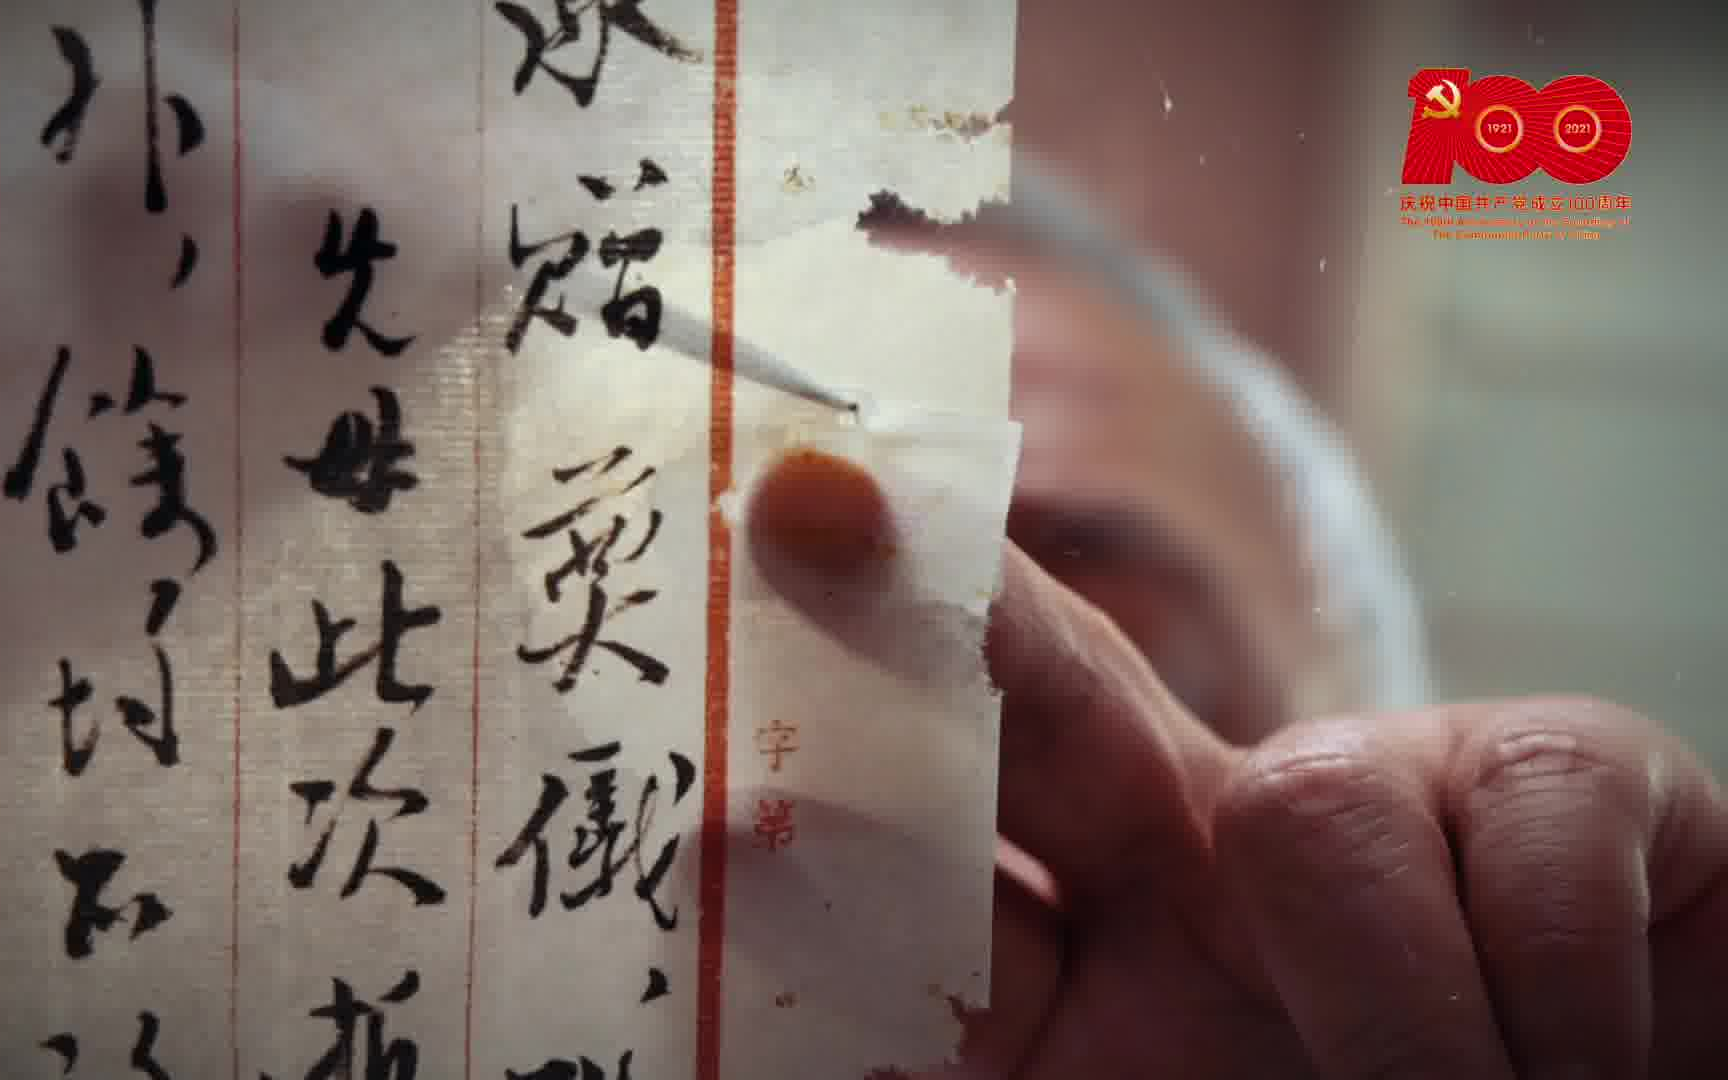 字第
承赠奠仪、
先母此次
外，馀均不
100
1921
2021
庆祝中国共产党成立100周年
The 100th Anniversary of the Founding of
The Communist Party of China